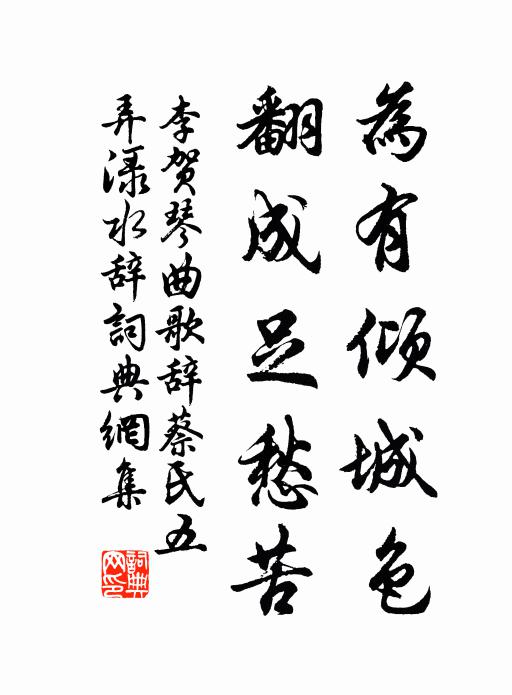 為有傾城色
翻成足愁苦
李賀琴曲歌辞蔡氏五
弄渌水辞詞典網集
詞典
网印